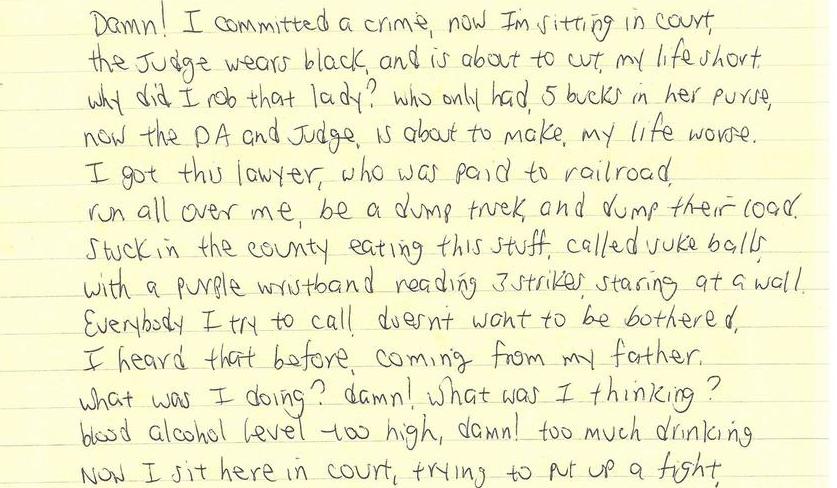 Damn! I committed a crime, now Im sitting in court,
the Judge wears black, and is about to cut, my life short.
why did I rob that lady? who only had, 5 bucks in her purse,
now the DA and Judge, is about to make, my life worse.
I got this lawyer, who was paid to railroad,
run all over me, be a dump truck, and dump their load.
Stuck in the county eating this stuff, called juke balls,
with a purple wristband reading 3 strikes, staring at a wall.
Everybody I try to call, doesnt want to be bothered,
I heard that before, coming from my father.
what was I doing? damn! what was I thinking?
blood alcohol level too high, damn! too much drinking
Now I sit here in court, trying to put up a fight,